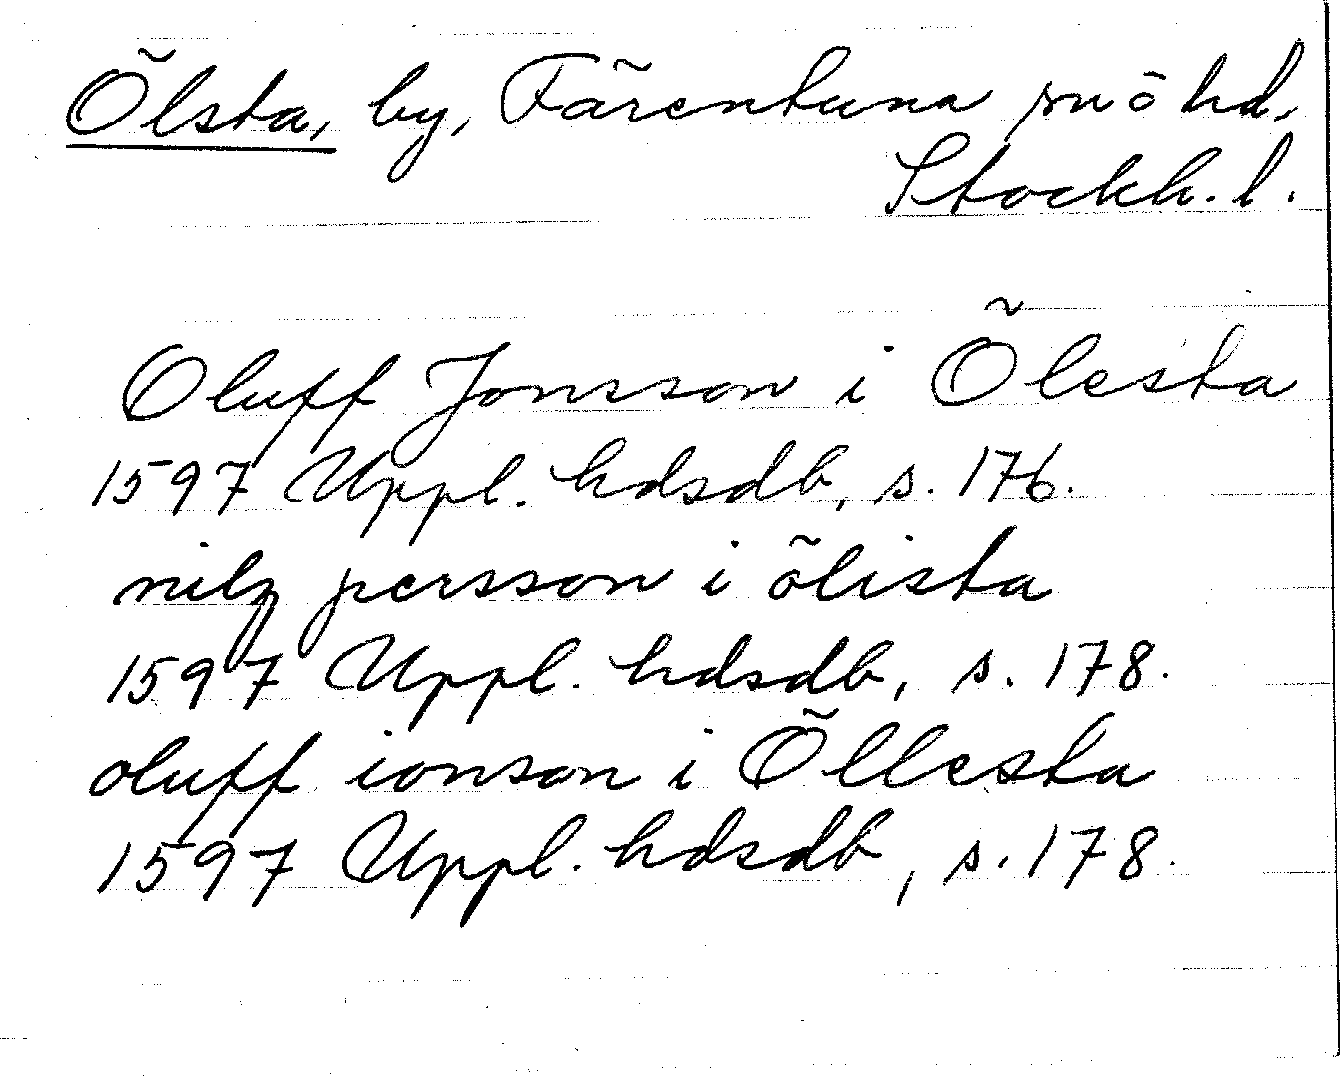 Ölsta, by, Färentuna sn ö hd,
Stockh. l.
Oluff Jonsson i Ölesta
1597 Uppl. hdsdb, s. 176.
nilz persson i ölista
1597 Uppl. hdsdb, s. 178.
oluff ionson i Öllesta
1597 Uppl. hdsdb, s. 178.